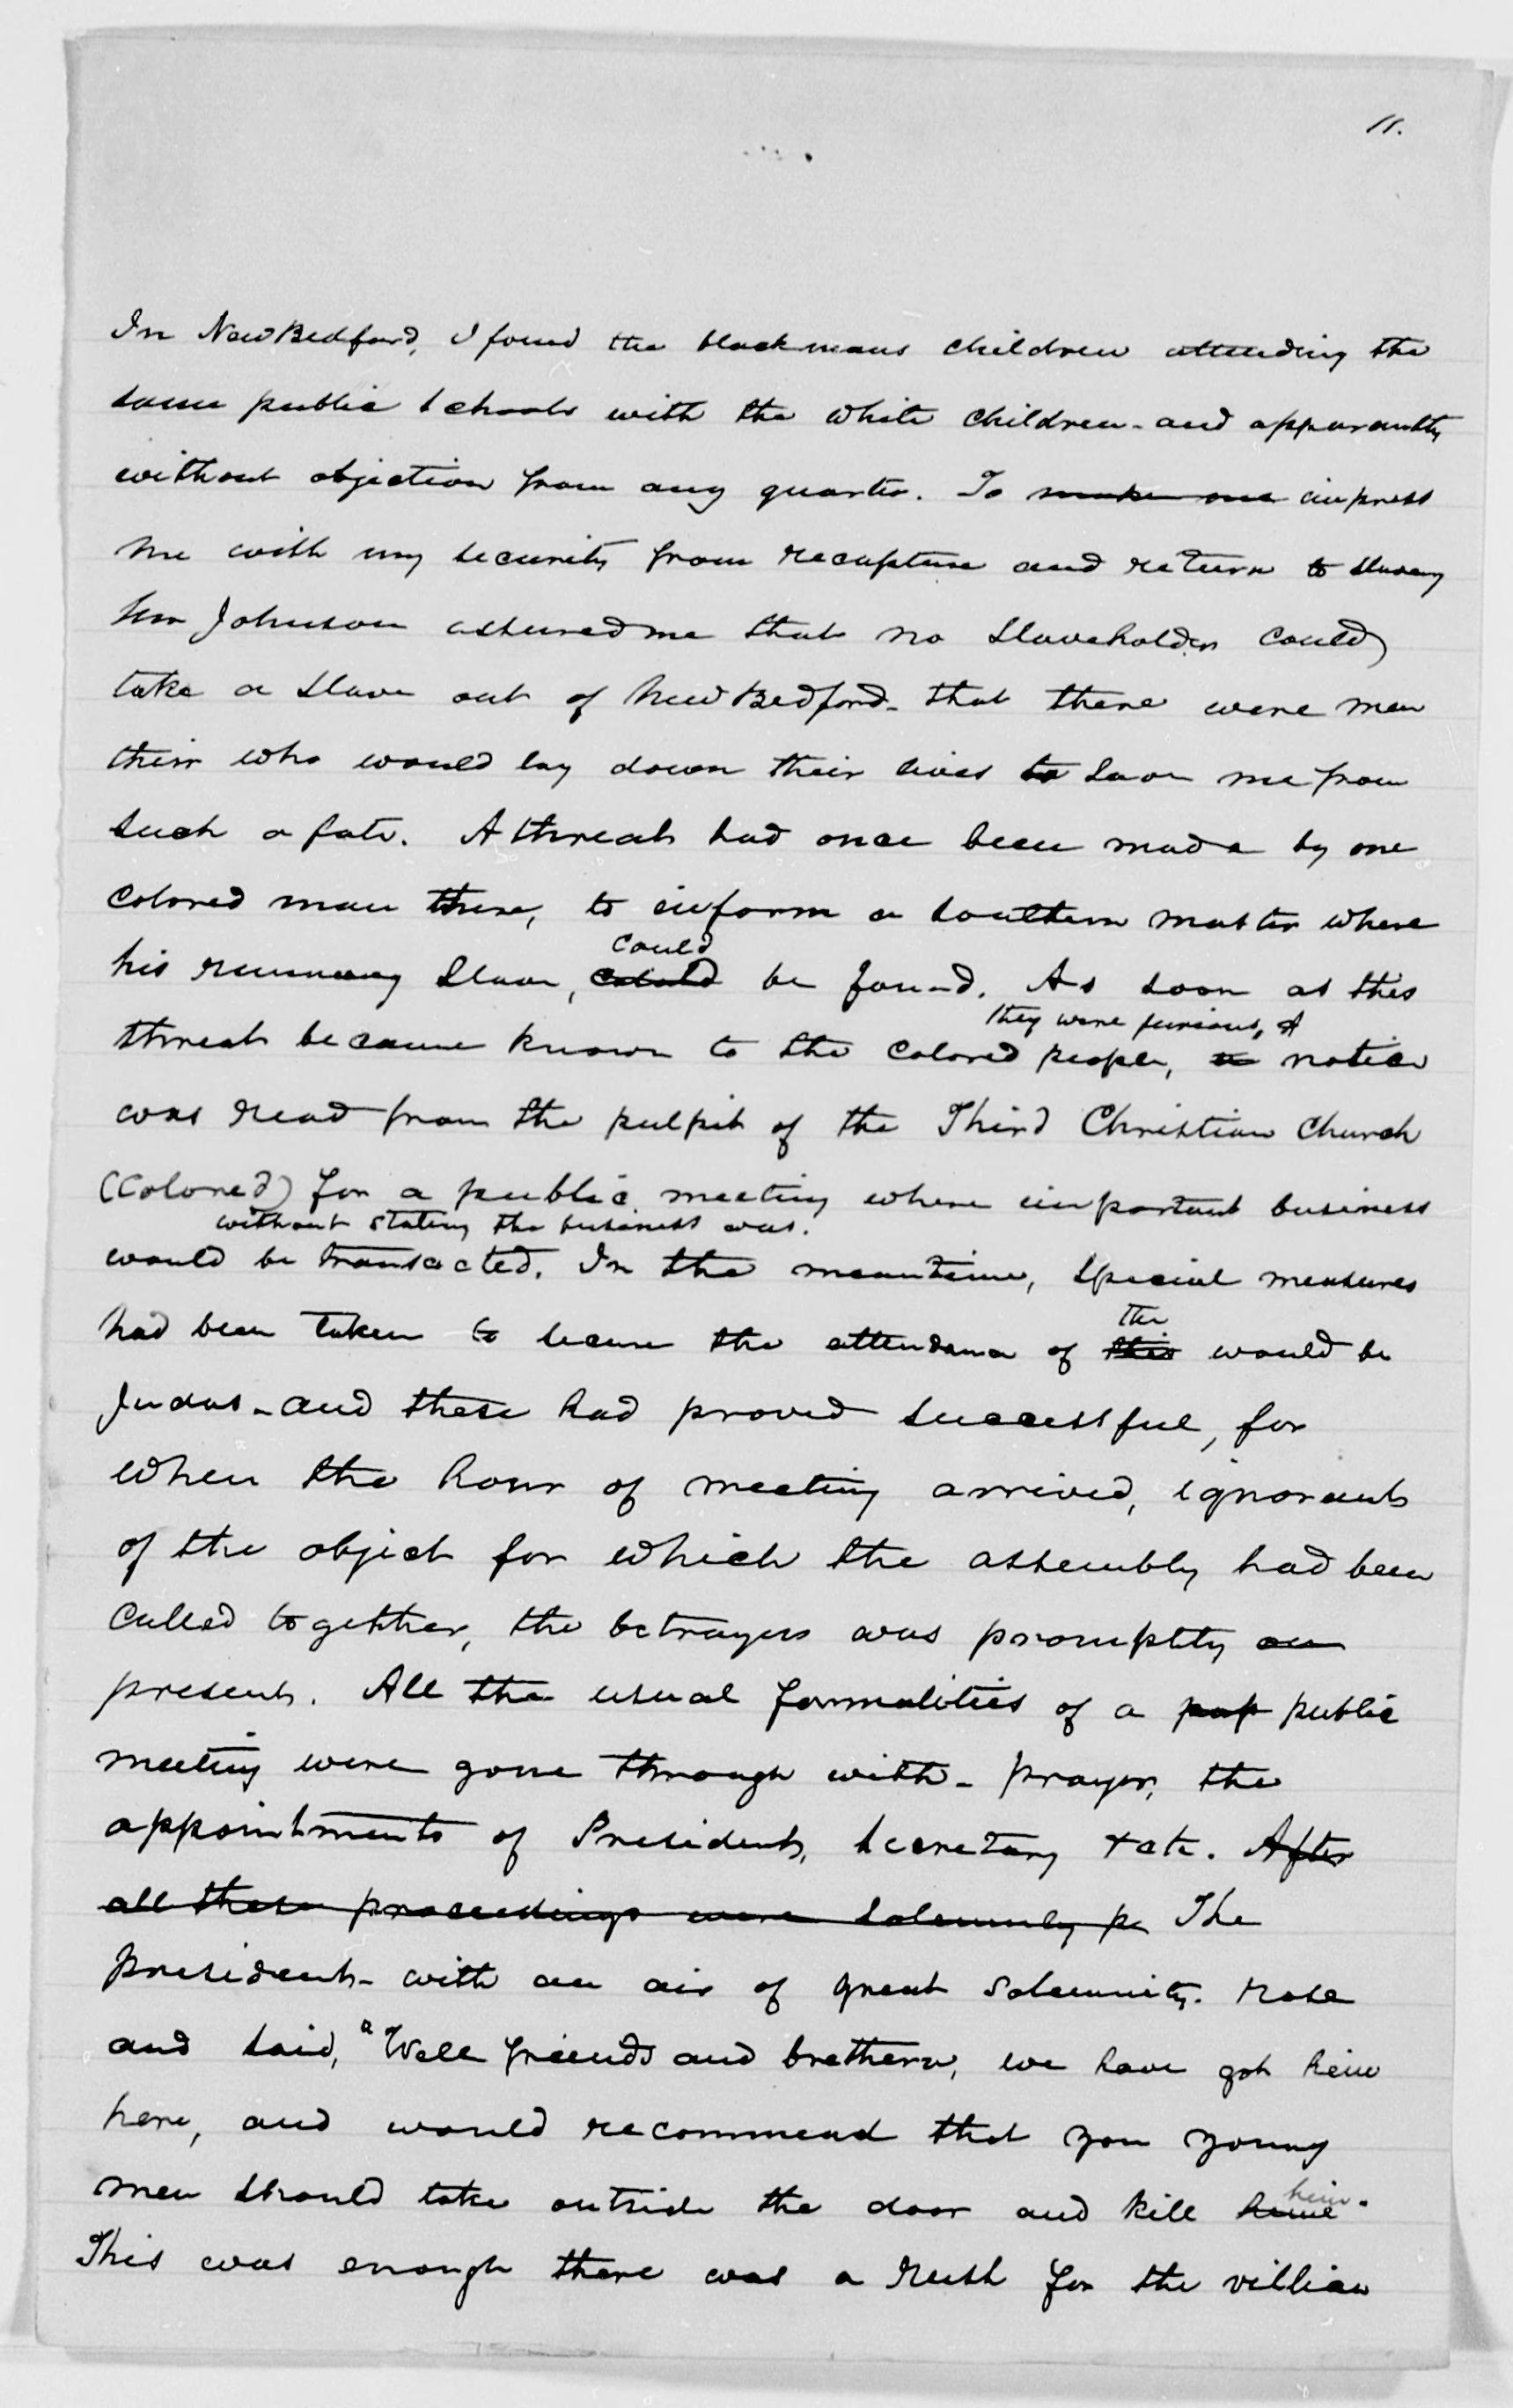 11.
In New Bedford, I found the black mans children attending the
same public schools with the white children - and apparantly
without objection from any quarter. To make me impress
me with my security from recapture and return to slavery
Mr Johnson assured me that no slaveholder could
take a slave out of New Bedford - that there were men
their who would lay down their lives to save me from
such a fate. A threat had once been made by one
colored man there, to inform a southern master where
could
his runaway slave, could be found. As soon as this
they were furious, A
threat became known to the colored people, a notice
was read from the pulpit of the Third Christian Church
(Colored) for a public meeting where important business
without stating the business was.
would be transacted. In the meantime, special measures
the
had been taken to secure the attendance of this would be
Judas - and these had proved successful, for
when the hour of meeting arrived, ignorant
of the object for which the assembly had been
called together, the betrayer was promptly on
present. All the usual formalities of a pup public
meeting were gone through with - prayer, the
appointments of President, Secretary + etc. After
all these proceedings were solemnly pe The
president - with an air of great solemnity. rose
and said, "Well friends and brethern, we have got him
here, and would recommend that you young
him.
men should take outside the door and kill hime.
This was enough there was a rush for the villian